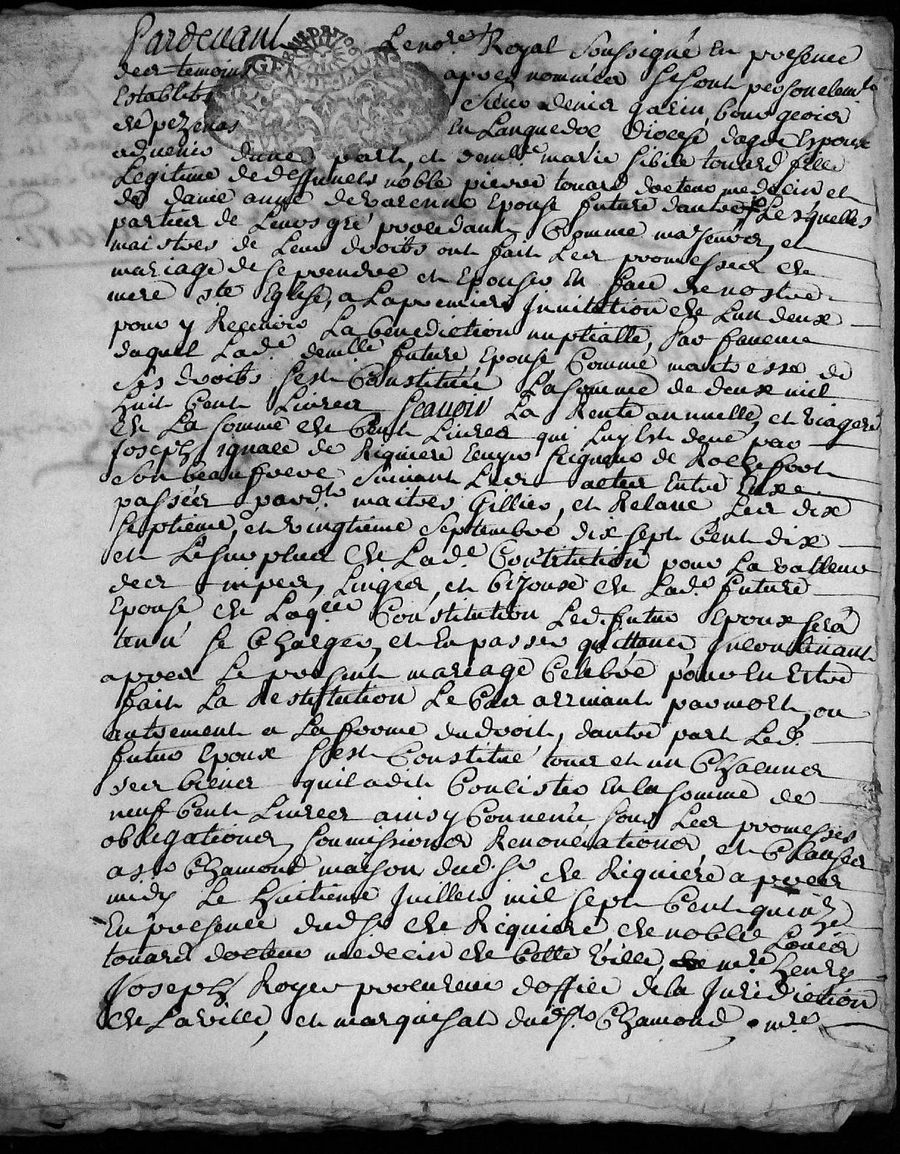 Pardevant Le no.re Royal Soussigné En presence
des temoins apres nommés Se sont personelem.t
Establits Sieur denis garin, bourgeois
de pezenas En Languedoc diocese dagde Epoux
advenir dune part, et dem.lle marie Sibile touard fille
Legitime de deffunts noble pierre touard docteur medecin et
de dame anne devarenne Epouse future dautre, Lesquelles
parties de Leurs gré procedant Comme majeures, et
maistres de Leurs droits ont fait Les promesses de
mariage de Se prendre et Epouser En face de nostre
mere s.te Eglise, a La premiere Invitation de Lun deux
pour y Recevoir La benediction nuptialle, En faveur
duquel Lad.e dem.lle future Epouse Comme maitresse de
Ses droits Sest Constituée La Somme de deux mil
huit Cent Livres Scavoir La Rente annuelle, et viagere
de La Somme de Cent Livres qui Luy Est deue par
Joseph ignace de Riquiere de Rochefort
Son beau frere Suivant Les actes Entre Eux
passés pard.t maitres Gillier, et Relave, Les dix
Septieme, et vingtieme Septembre dix Sept Cent dix
et Le surplus de Lad.e Constitution pour La valleur
des nipes, Linges, et bijoux de Lad.e future
Epouse, de Laq.elle Constitution Led. futur Epoux Sera
tenu Se Charger, et En passer quittance Incontinant
apres Le present mariage Celebré pour En Estre
fait La Restitution Le Cas arrivant par mort, ou
autrement a La forme du droit, dautre part Led.
futur Epoux Sest Constitué tous et un Chacuns
Ses biens quil a dit Consister En la Somme de
neuf Cent Livres ainsy Convenu Sous Les promesses
obligations, Soumissions Renonciations et Clauses
a S.t Chamond maison dud. S.r de Riquiere apres
midy Le huitieme Juillet mil Sept Cent quinze
En presence dud. S.r de Riquiere de noble Louis
touard docteur medecin de Cette ville, m.re henry
Joseph Royer procureur doffice de la Juridiction
de La ville, et marquisat dud. S.t Chamond, m.re